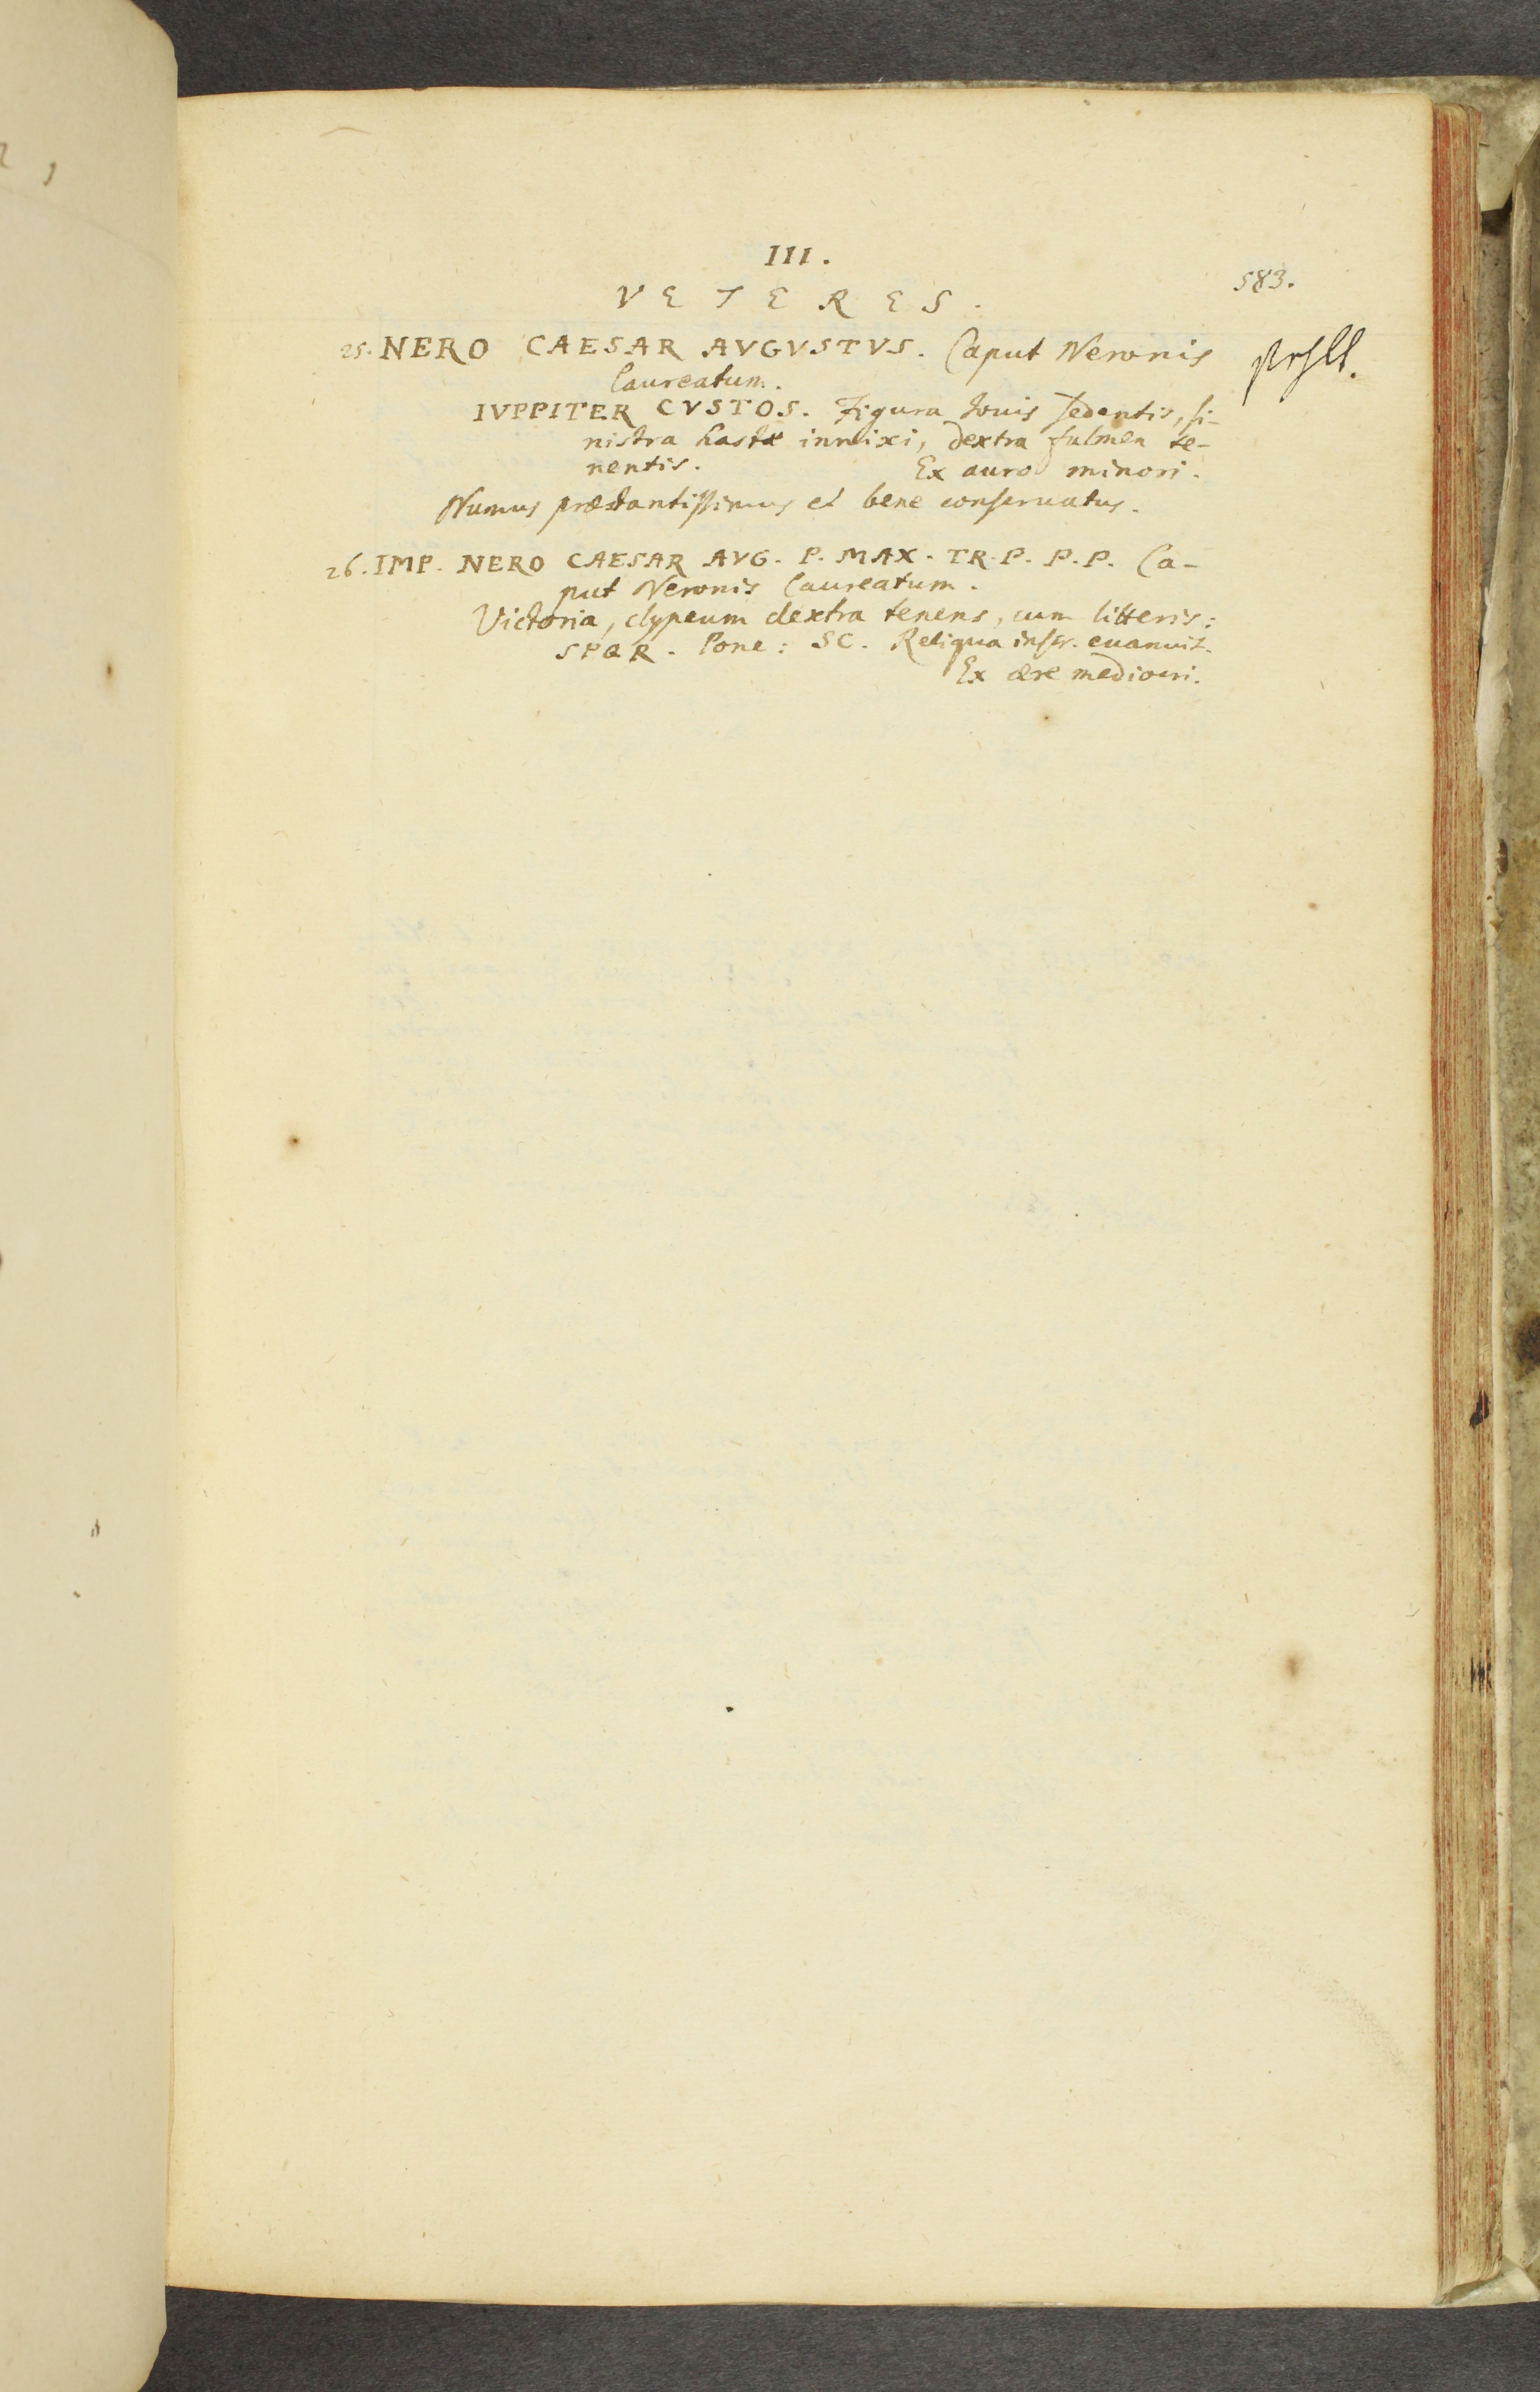 III.
583.
VETERES.
25. NERO CAESAR AVGVSTVS. Caput Neronis
laureatum.
IVPPITER CVSTOS. Figura Iouis sedentis, si-
nistra hastæ innixi, dextra fulmen te-
nentis. Ex auro minori.
Numus præstantissimus et bene conseruatus.
26. IMP. NERO CAESAR AVG. P. MAX. TR. P. P. P. Ca-
put Neronis laureatum.
Victoria, clypeum dextra tenens, cum litteris:
SPQR. Pone: SC. Reliqua inscr. euanuit.
Ex ære mediocri.